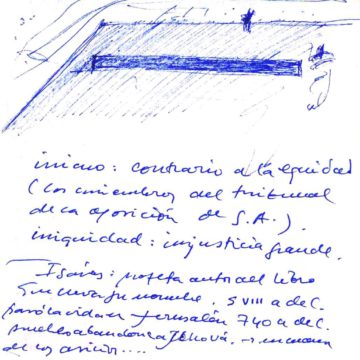 inicuo: contrario a la equidad
(los miembros del tribunal
de la oposición de S.A.).
iniquidad: injusticia grande.
Isaías: profeta autor del libro
que lleva su nombre. S VIII a de C.
pasó la vida en Jerusalén 740 a de C.
pueblo abandona a Jehová.
de los asirios....